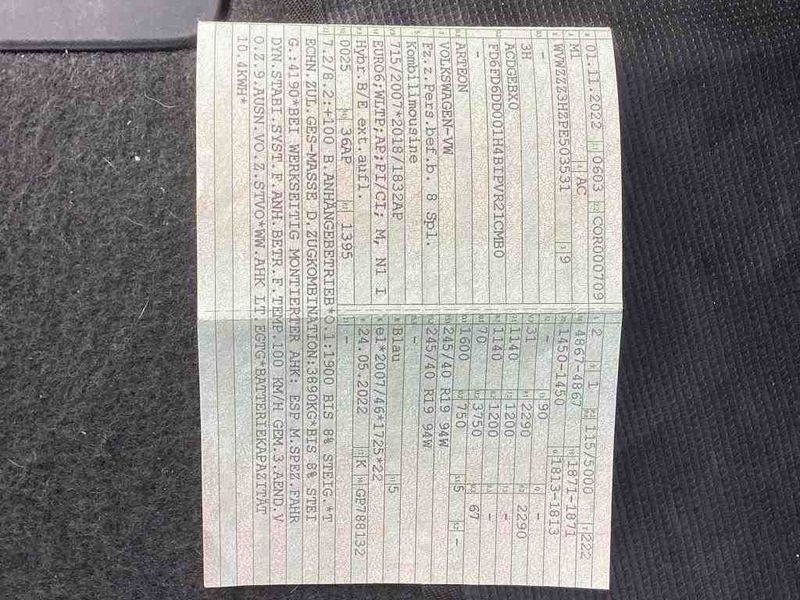 01.11.2022 0603 COR000709 2 1 115/5000 222
M1 AC 4867-4867 1871-1871
WVWZZZ3HZPE503531 9 1450-1450 1813-1813
- - 90 -
3H 31 2290 2290
ACDGEBX0 1140 1200 -
FD6FD6DD001H4BIPVR21CMB0 1140 1200 -
- 70 3750 67
ARTEON 1600 750 5 -
VOLKSWAGEN-VW 245/40 R19 94W
Fz.z.Pers.bef.b. 8 Spl. 245/40 R19 94W
Kombilimousine -
715/2007*2018/1832AP Blau 5
EURO6;WLTP;AP;PI/CI; M, N1 I e1*2007/46*1725*22
Hybr.B/E ext.aufl. 24.05.2022 K GP788132
0025 36AP 1395 -
7.2/8.2:+100 B.ANHÄNGEBETRIEB*O.1:1900 BIS 8% STEIG.*T
ECHN.ZUL.GES-MASSE D.ZUGKOMBINATION:3890KG*BIS 8% STEI
G.:4190*BEI WERKSEITIG MONTIERTER AHK: ESP M.SPEZ.FAHR
DYN.STABI.SYST.F.ANH.BETR.F.TEMP.100 KM/H GEM.3.AEND.V
O.Z.9.AUSN.VO.Z.STVO*WW.AHK LT.EGTG*BATTERIEKAPAZITÄT
10.4KWH*